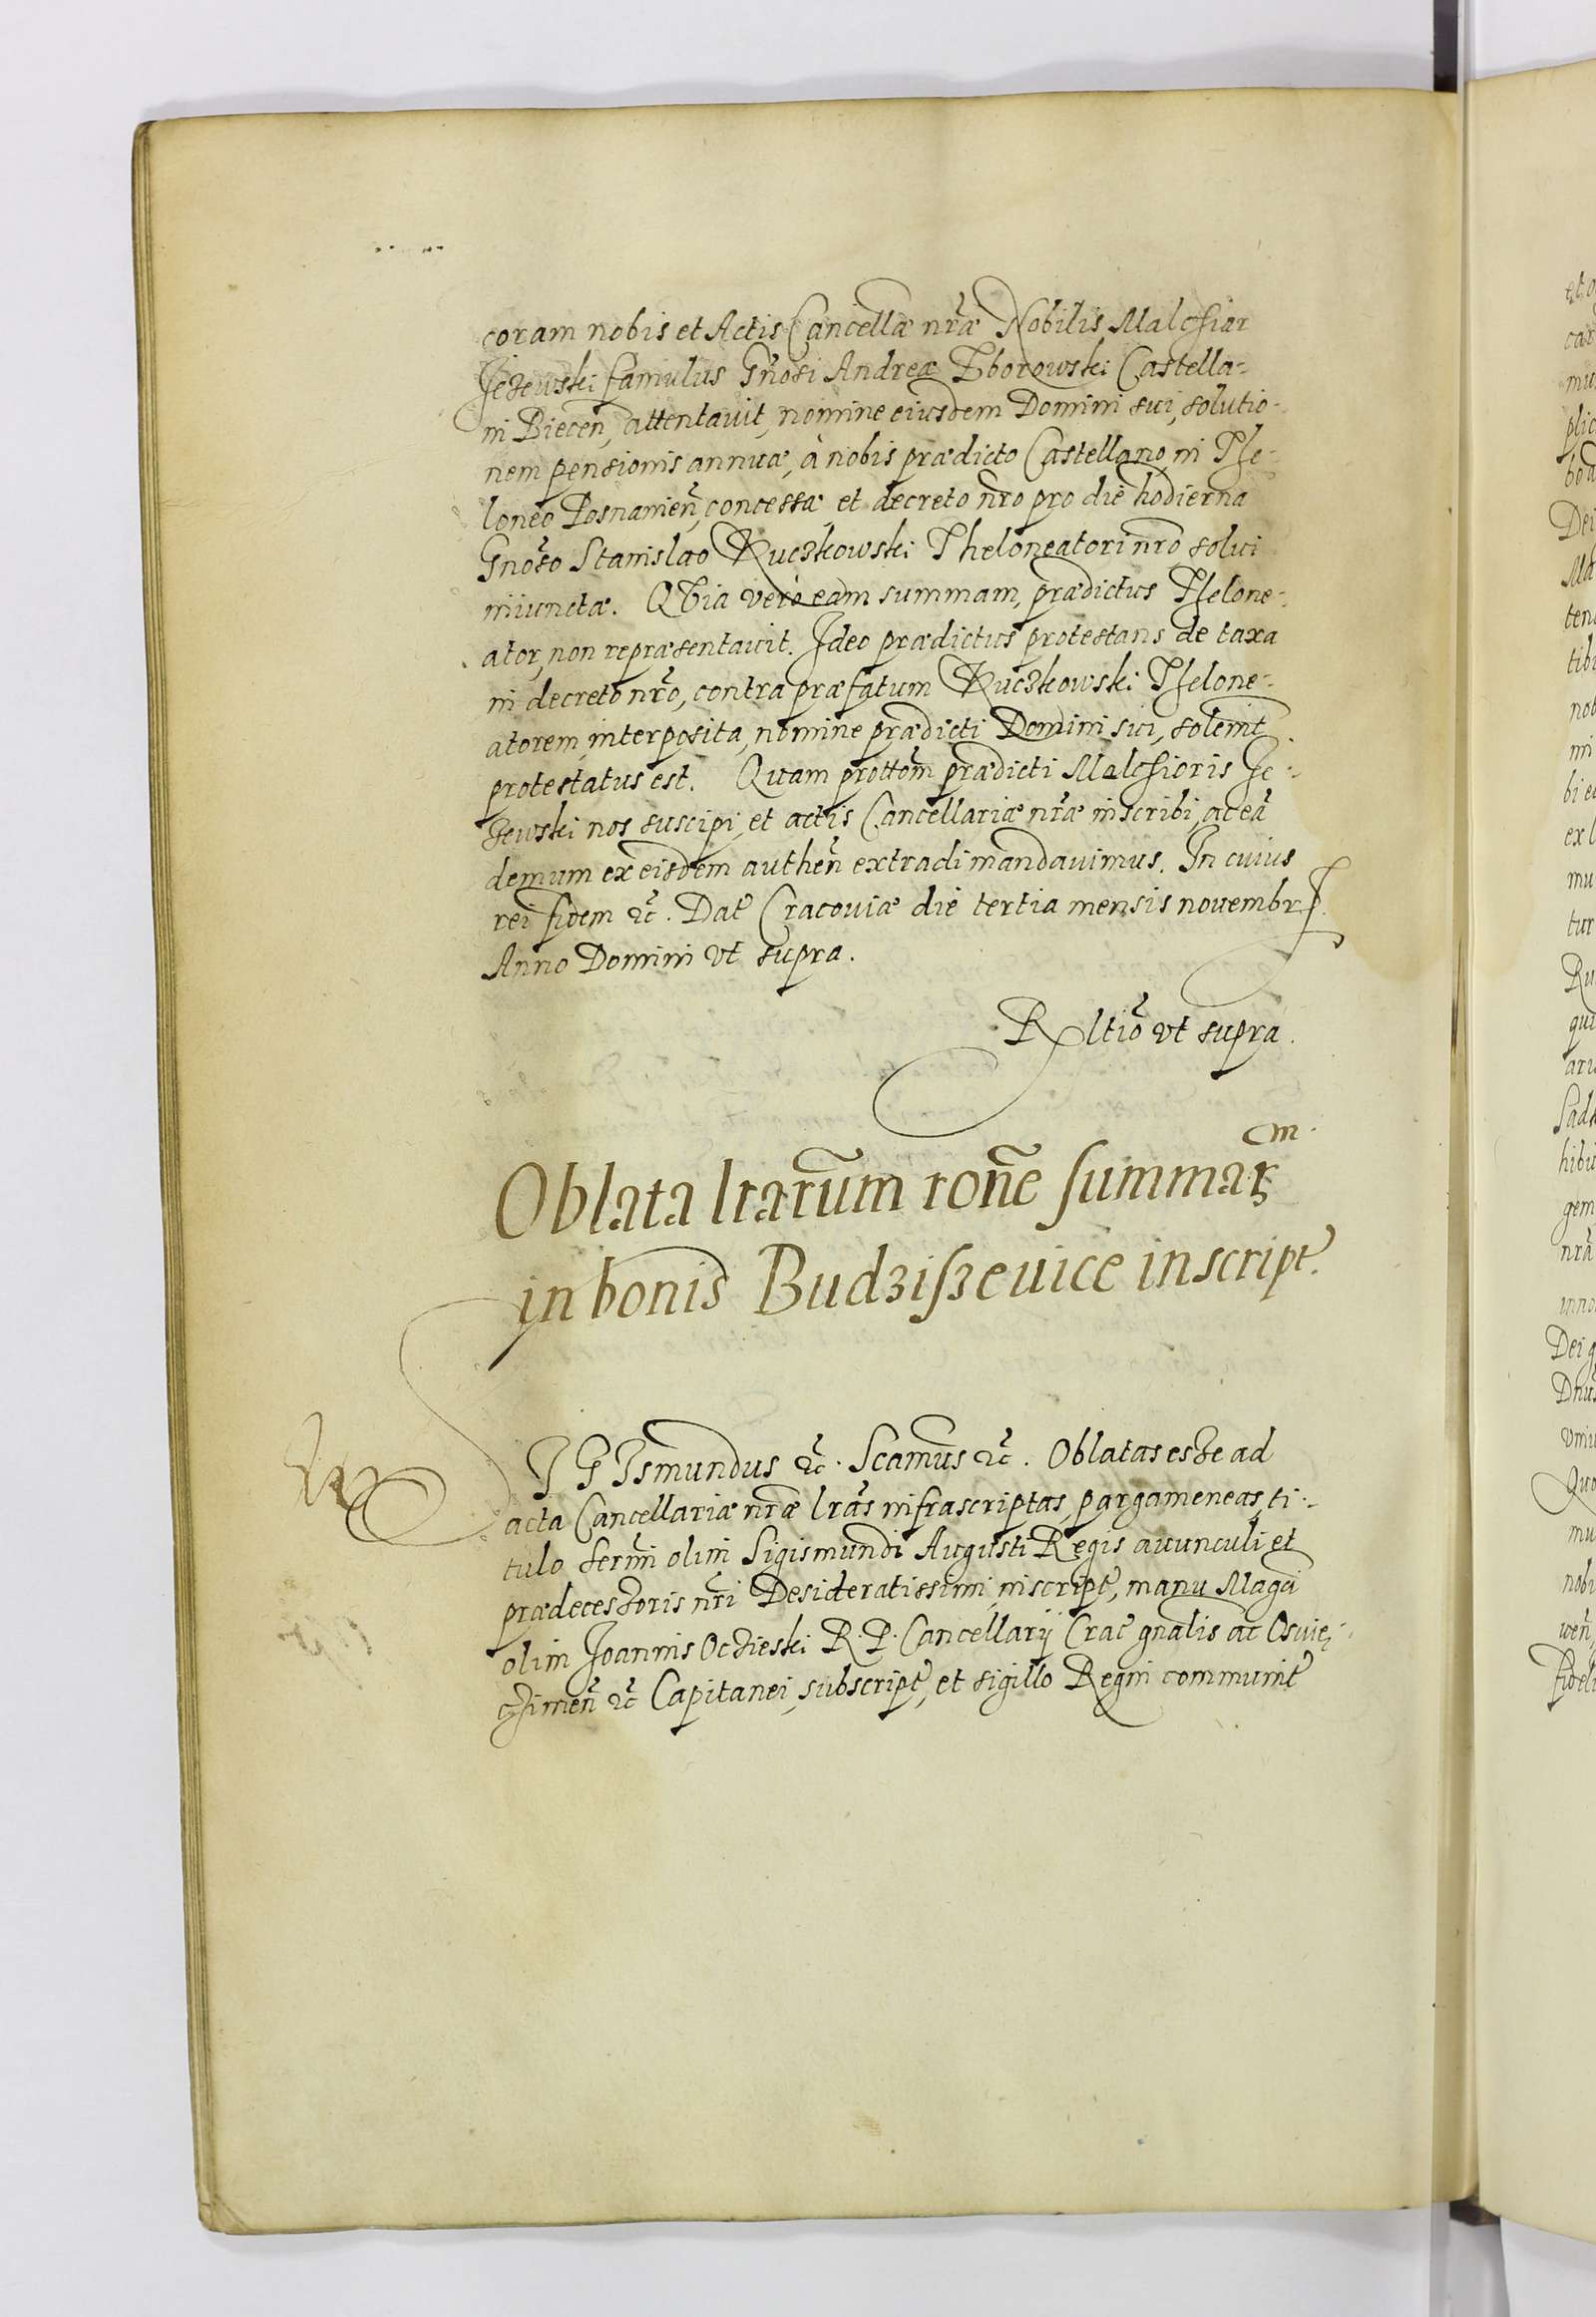 coram nobis et Actis Cancellæ nrӕ Nobilis Malchiar
Jezewski famulus Gnosi Andreæ Zborowski Castella-
ni Biecen, attentauit, nomine eiusdem Domini sui, solutio-
nem pensionis annuæ, à nobis prædicto Castellano, in The-
loneo Posnanien, concessæ et decreto nro pro die hodierna
Gnoso Stanislao Kuczkowski Theloneatori nro solui
iniunctæ. QVia verò eam summam, prædictus Thelone-
ator, non repræsentauit. Ideo prædictus protestans de taxa
in decreto nro, contra præfatum Kuczkowski Thelone-
atorem, interposita, nomine prædicti Domini sui, solenit
protestatus est. Quam prottom prædicti Malchioris Je-
zewski nos suscipi, et actis Cancellariæ nræ inscribi, ac eã
demum ex eisdem authen extradi mandauimus. In cuius
rei fidem &c. Dat Cracouiæ die tertia mensis nouembr
Anno Domini vt supra.
Rltio vt supra.
Oblata lrarum rone summar cm
in bonis Budziszeuice inscript.
SIGIsmundus &c. Scamus &c. Oblatas esse ad
acta Cancellariæ nræ lras infrascriptas, pargameneas, ti-
tulo Sermi olim Sigismundi Augusti Regis auunculi et
prædecessoris nri Desideratissimi, inscript, manu Magci
olim Joannis Oczieski R. P. Cancellarij Crac gnalis ac Osuię-
cimen &c Capitanei, subscript, et sigillo Regni communit